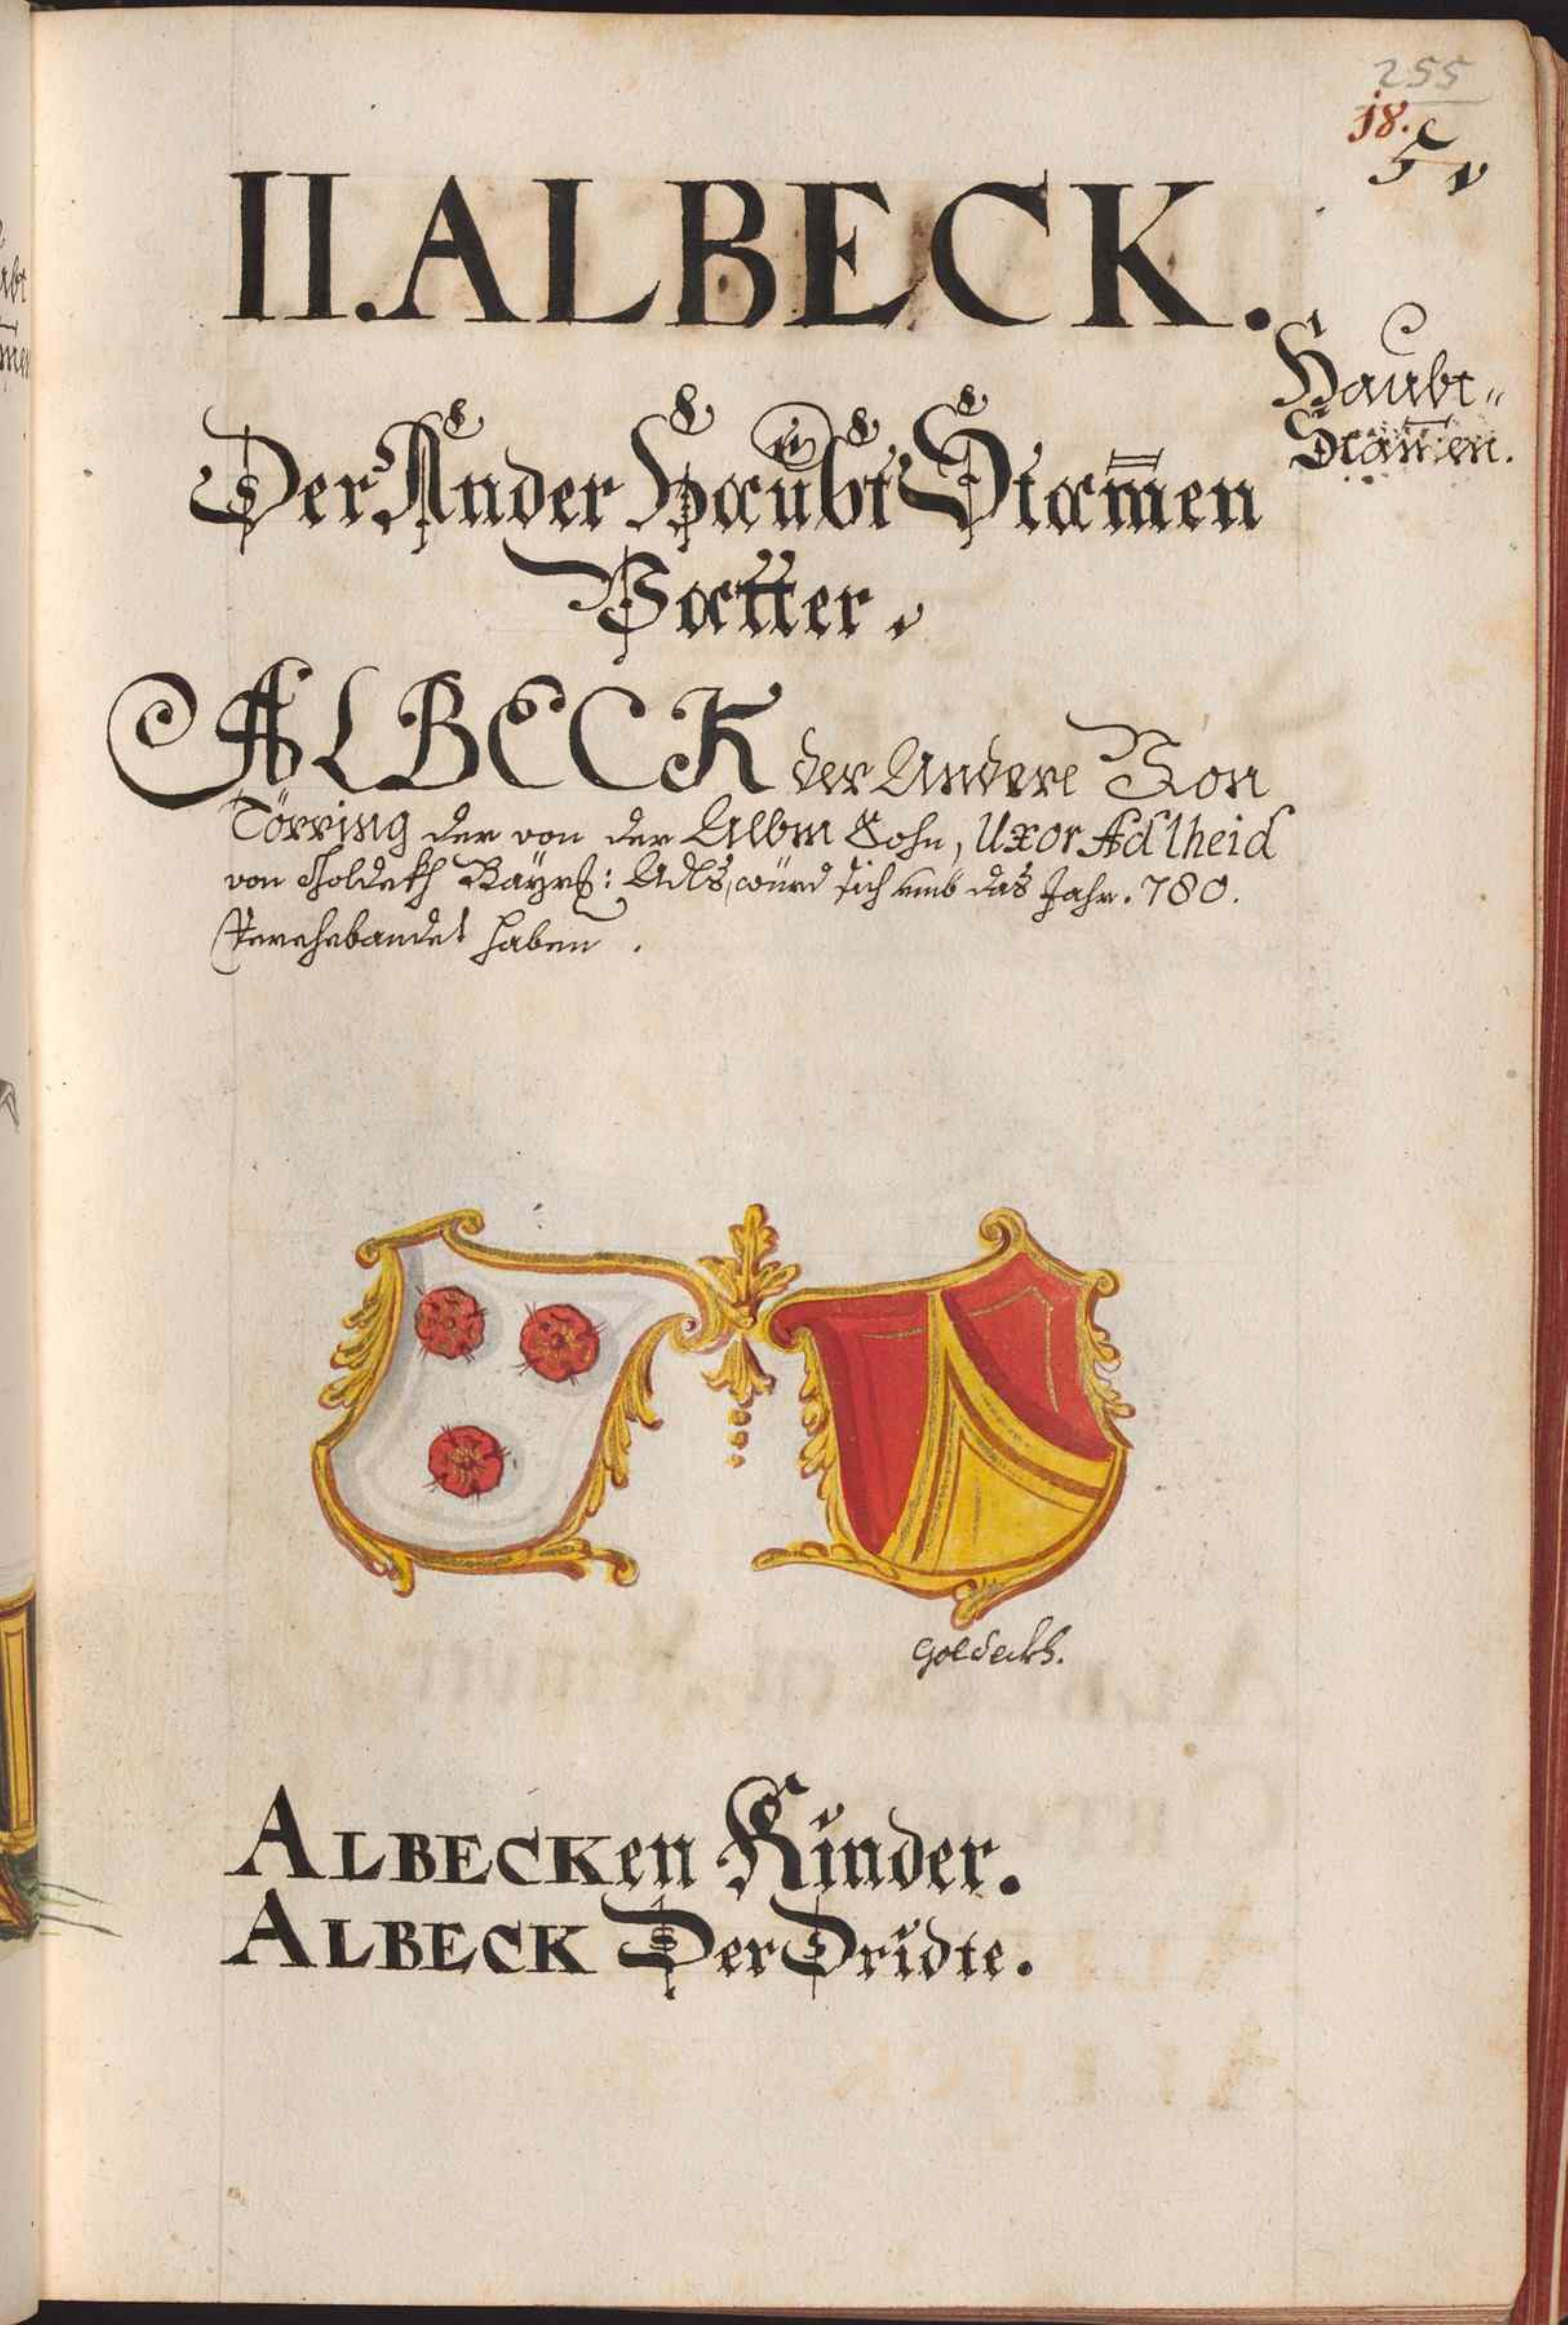 255
18.
II. ALBECK.
Haubt-
Stam̄en.
Der Ander Haubt Stam̄en
Vatter.
ALBECK der Andere Von
Törring der von der Albm Sohn, Uxor Adlheid
von Goldekh Bayrß: Adls, würd sich umb das Jahr. 780.
Verehebandet haben.
Goldeckh.
ALBECKen Kinder.
ALBECK Der Dridte.